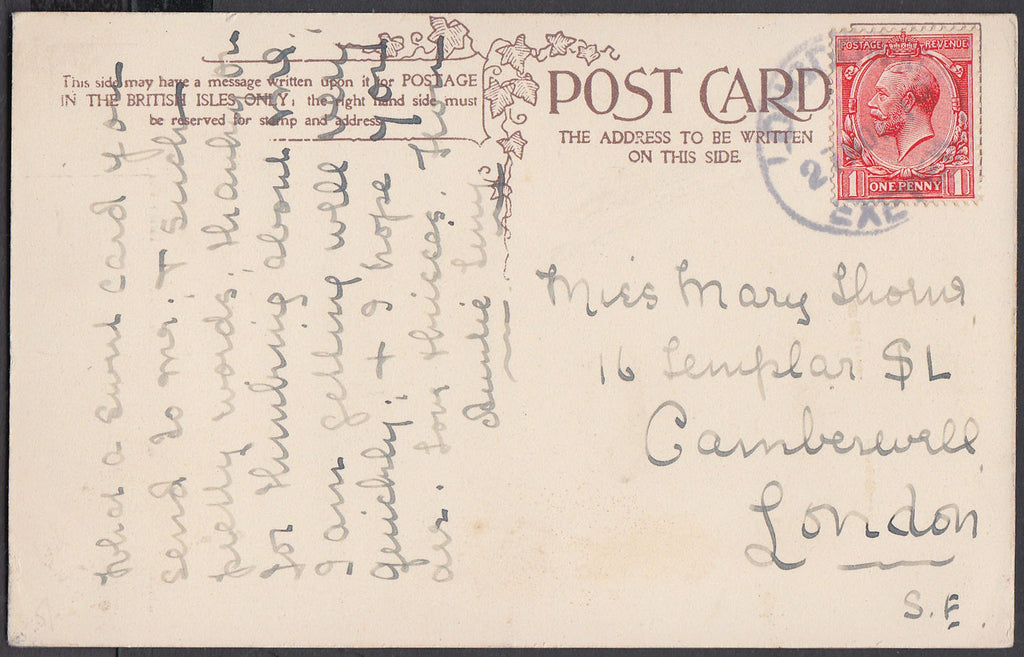 This side may have a message written upon it for POSTAGE
IN THE BRITISH ISLES ONLY; the right hand side must
be reserved for stamp and address.
POST CARD
THE ADDRESS TO BE WRITTEN
ON THIS SIDE.
POSTAGE REVENUE
1 ONE PENNY 1
EXE
Miss Mary Thorne
16 Templar St
Camberwell
London
S.E.
What a sweet card you
send to me. & such
pretty words; thank you
for thinking about me.
I am getting well very
quickly; & I hope you
are. Love & kisses. from
Auntie